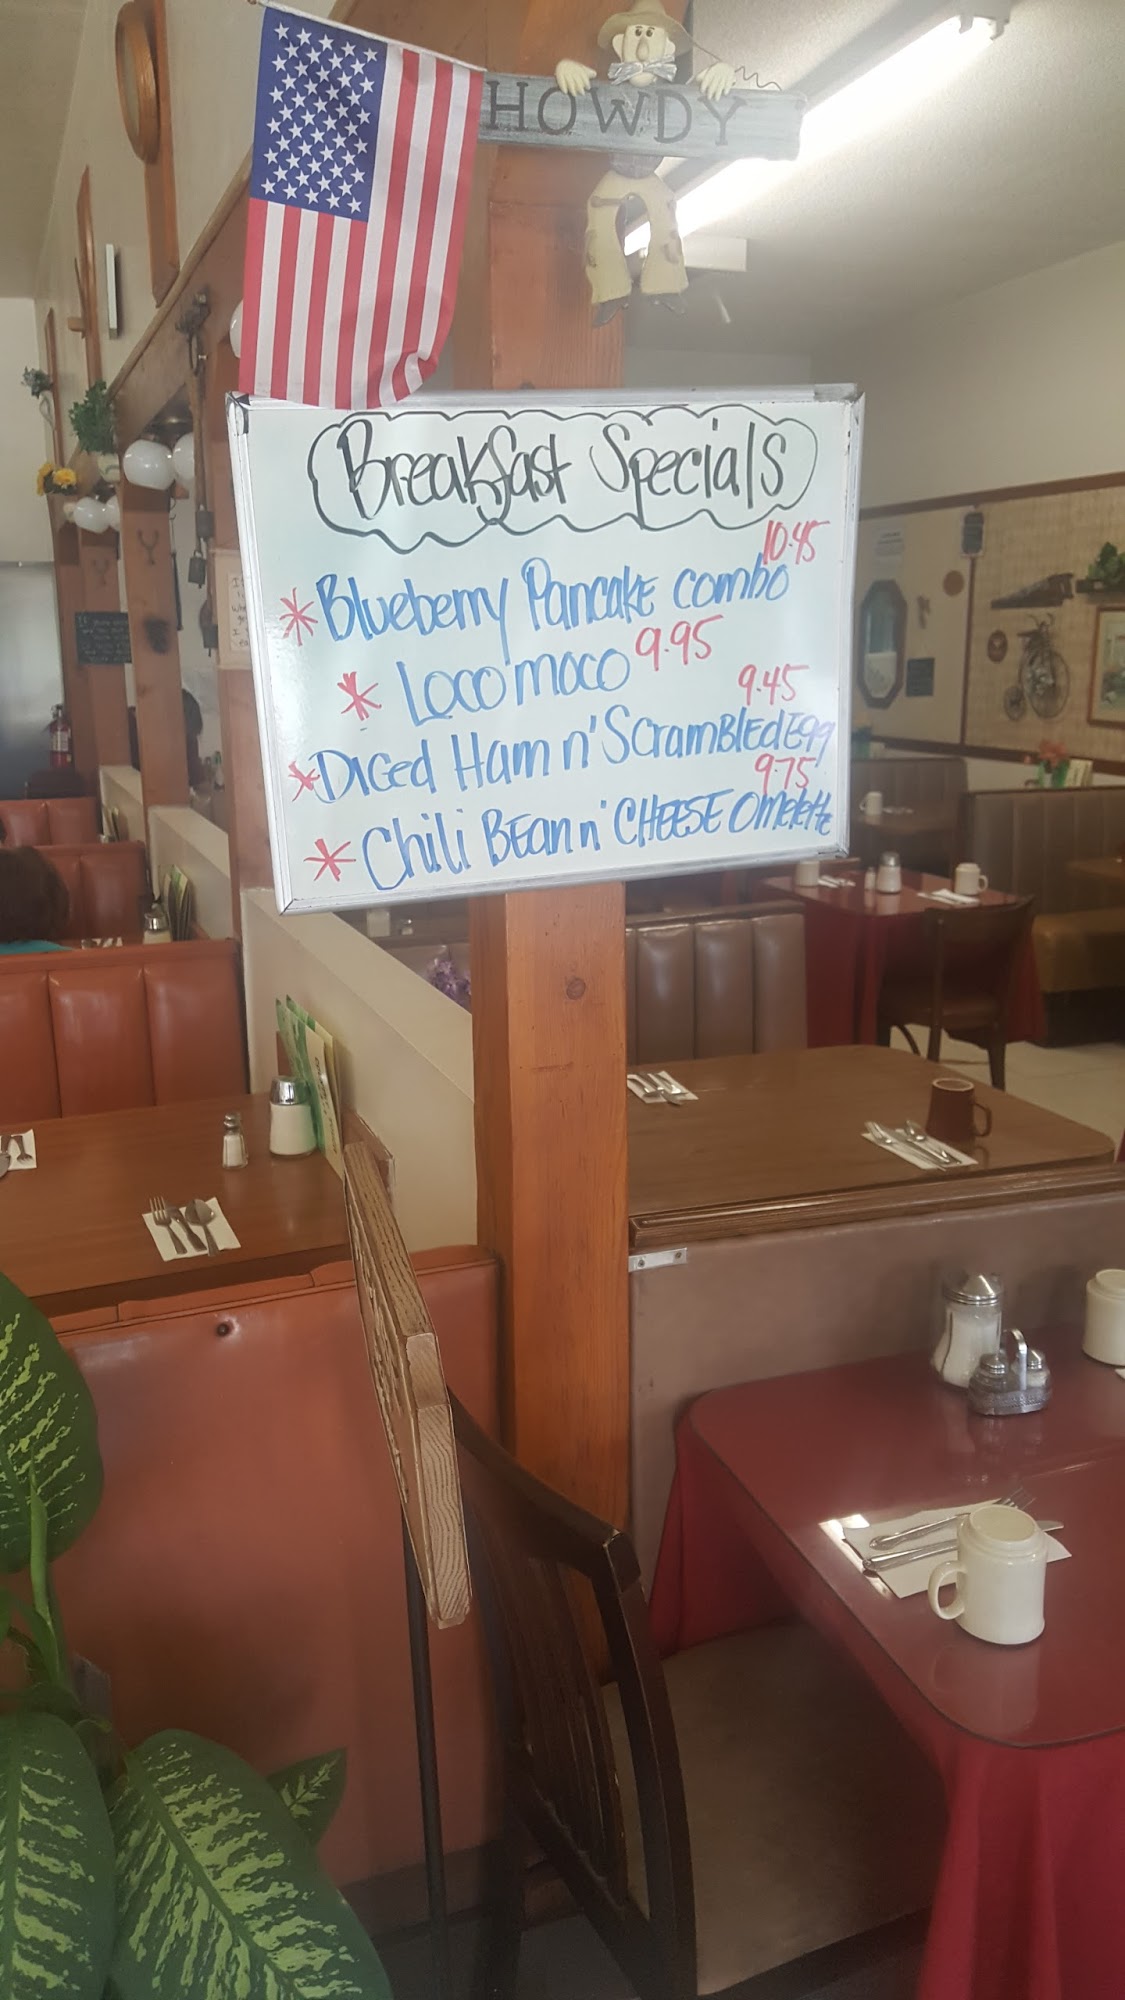 HOWDY
Breakfast Specials
10.45
* Blueberry Pancake combo
* Loco moco 9.95
9.45
* Diced Ham n' Scrambled Egg
9.75
* Chili Bean n' CHEESE Omelette